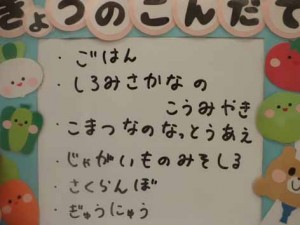 きょうのこんだて
・ごはん
・しろみさかなの
こうみやき
・こまつなのなっとうあえ
・じゃがいものみそしる
・さくらんぼ
・ぎゅうにゅう